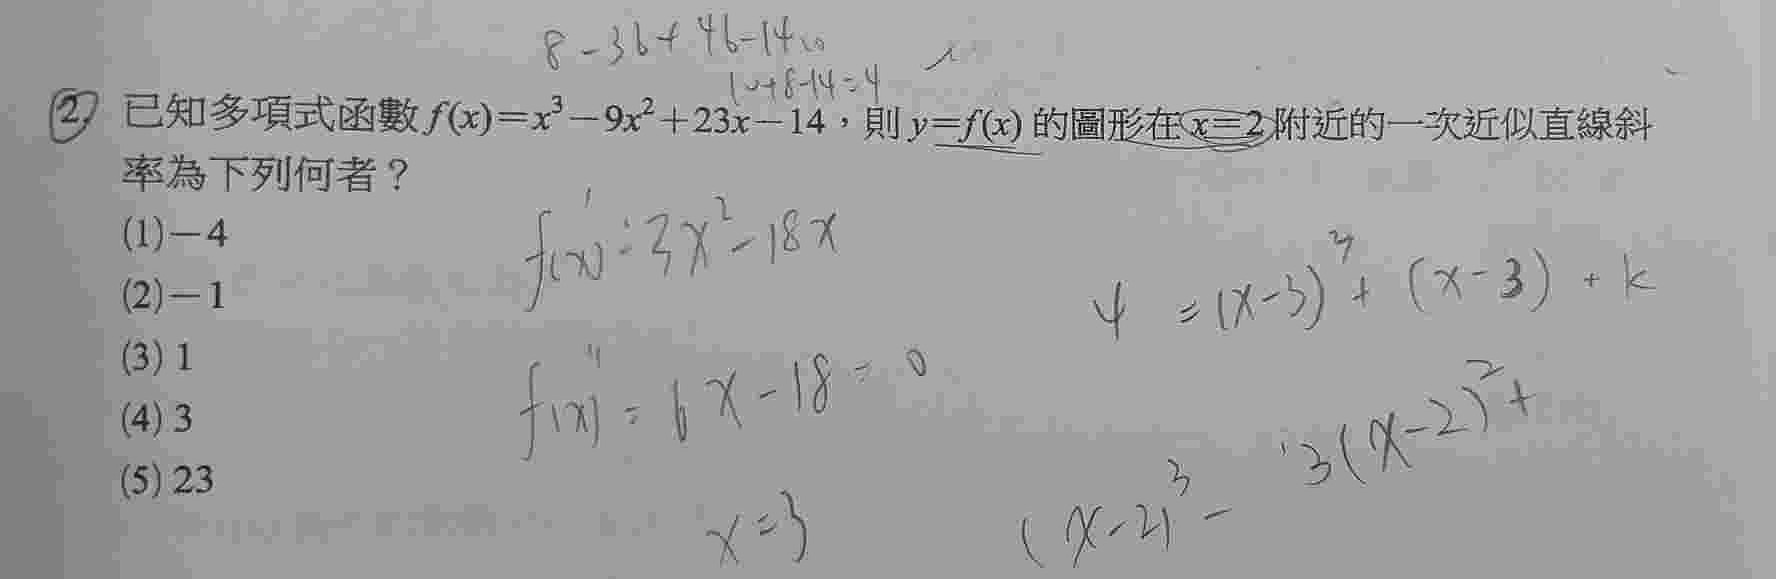 8-3b+4b-14
10+8-14=4
2 已知多項式函數 f(x)=x³-9x²+23x-14,則 y=f(x) 的圖形在 x=2 附近的一次近似直線斜
率為下列何者?
(1)-4
(2)-1
(3) 1
(4) 3
(5) 23
f'(x)=3x²-18x
f''(x)=6x-18=0
x=3
=(x-3)³+(x-3)+k
(x-2)³-3(x-2)²+